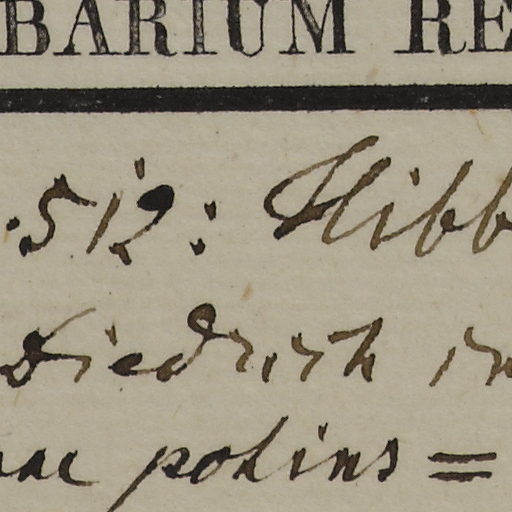 BARIUM RE
.512: Hibb
Diedrich in
nae potius =